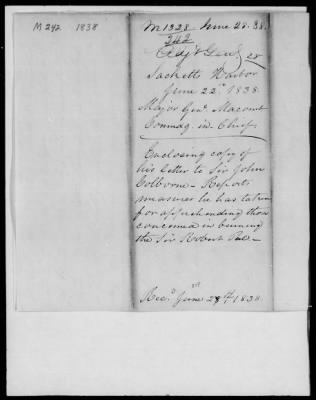 M242 1838
M 1328 June 28. 38.
242
Adjt Genl 28
Sacketts Harbor
June 22d 1838.
Major Genl Macomb
Commdg. in Chief
Enclosing copy of
his letter to Sir John
Colborne – Reports
measures he has taken
for apprehending those
concerned in burning
the Sir Robert Peel –
Recd June 28th 1838.